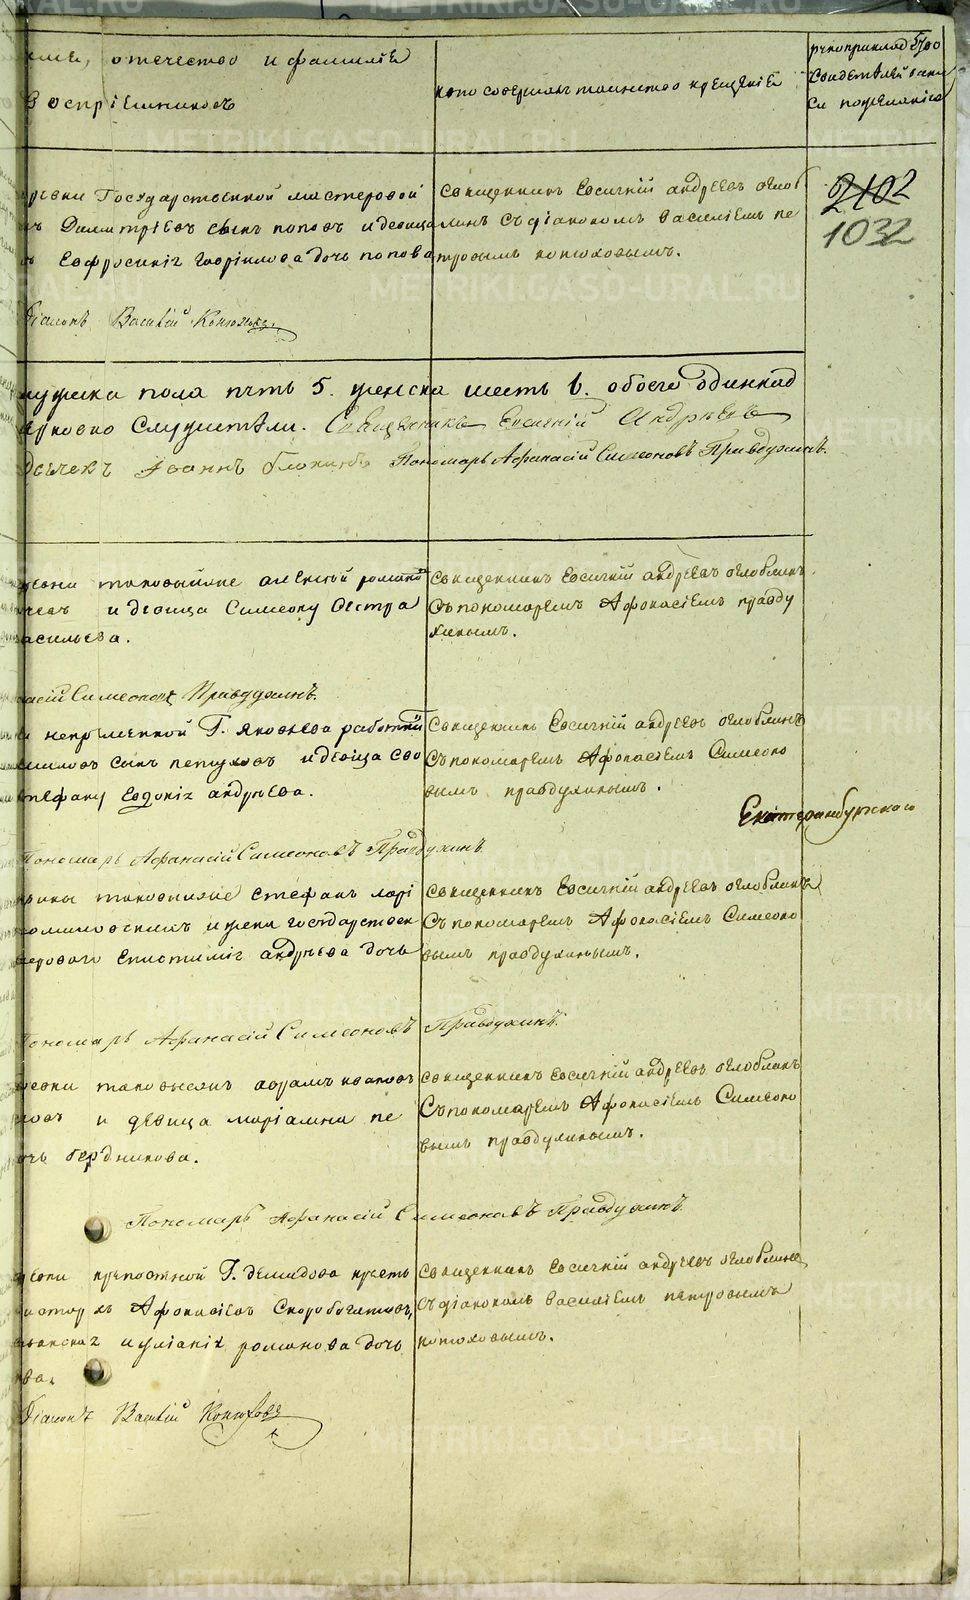 отечество и фамилїе
воспрїемниковъ
кто совершалъ таинство крещенїе
рукоприклад
свидетелей записи
си пожеланїю
2102
1032
Государственной мастеровой
Димитрїевъ сынъ поповъ и девица
Евфросинїя Гаврїилова дочь попова
священникъ Евсигнїй андреевъ оглоб
линъ съ дїакономъ василїемъ пе
тровымъ конюховымъ.
Дїаконъ Василїй Конюховъ
мужска пола пять 5. женска шесть 6. обоего одиннад
служители. Священникъ Евсигнїй Андреевъ
Їоаннъ Пономарь Афанасїй Симеоновъ Правдухинъ.
таковыйже алексѣй романо
и девица Симеону Сестра
асильева.
священникъ Евсигнїй андреевъ оглоблинъ
съ пономаремъ Афонасїемъ правду
хинымъ.
асїй Симеоновъ Правдухинъ.
непременной Г. Яковлева работни
сынъ петуховъ и девица сво
стефану Евдокїя андреева.
священникъ Евсигнїй андреевъ оглоблинъ
съ пономаремъ Афонасїемъ Симеоно
вымъ правдухинымъ.
Екатеринбургскаго
Пономарь Афанасїй Симеоновъ Правдухинъ
стефанъ ларї
и жена государствен
герового Епистимїя андреева дочь
священникъ Евсигнїй андреевъ оглоблинъ
съ пономаремъ Афонасїемъ Симеоно
вымъ правдухинымъ.
Пономарь Афанасїй Симеоновъ Правдухинъ.
аврамъ ивановъ
и девица марїамна пе
очь бердникова.
священникъ Евсигнїй андреевъ оглоблинъ
съ пономаремъ Афонасїемъ Симеоно
вымъ правдухинымъ.
Пономарь Афанасїй Симеоновъ Правдухинъ
крепостной Г. демидова кресть
Афонасїевъ Скоробогатовъ,
и улїанїя романова дочь
ва.
священникъ Евсигнїй андреевъ оглоблинъ
съ дїакономъ василїемъ петровымъ
конюховымъ.
Дїаконъ Василїй Конюховъ
METRIKI.GASO-URAL.RU